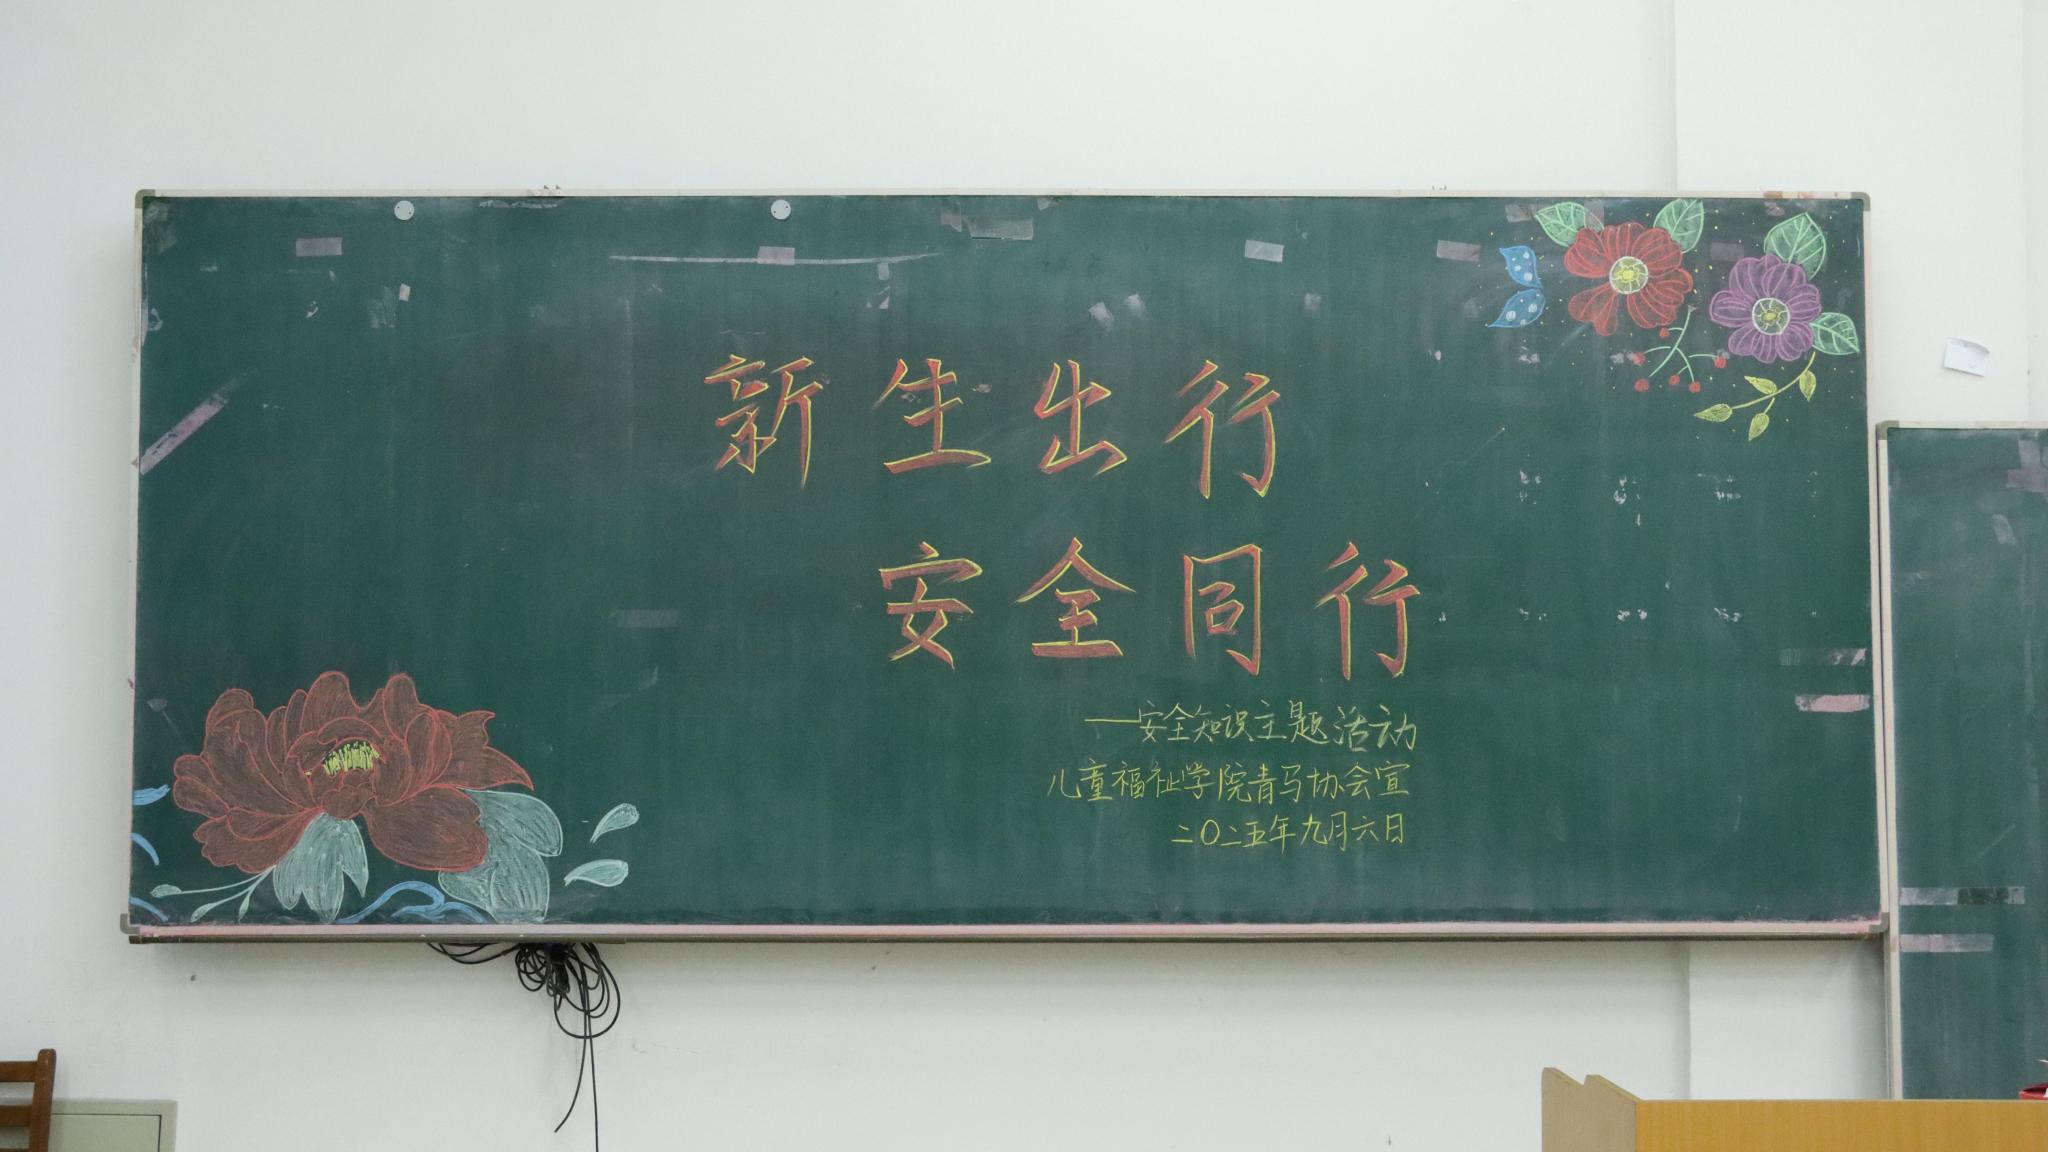 新生出行
安全同行
——安全知识主题活动
儿童福祉学院青马协会宣
二〇二五年九月六日